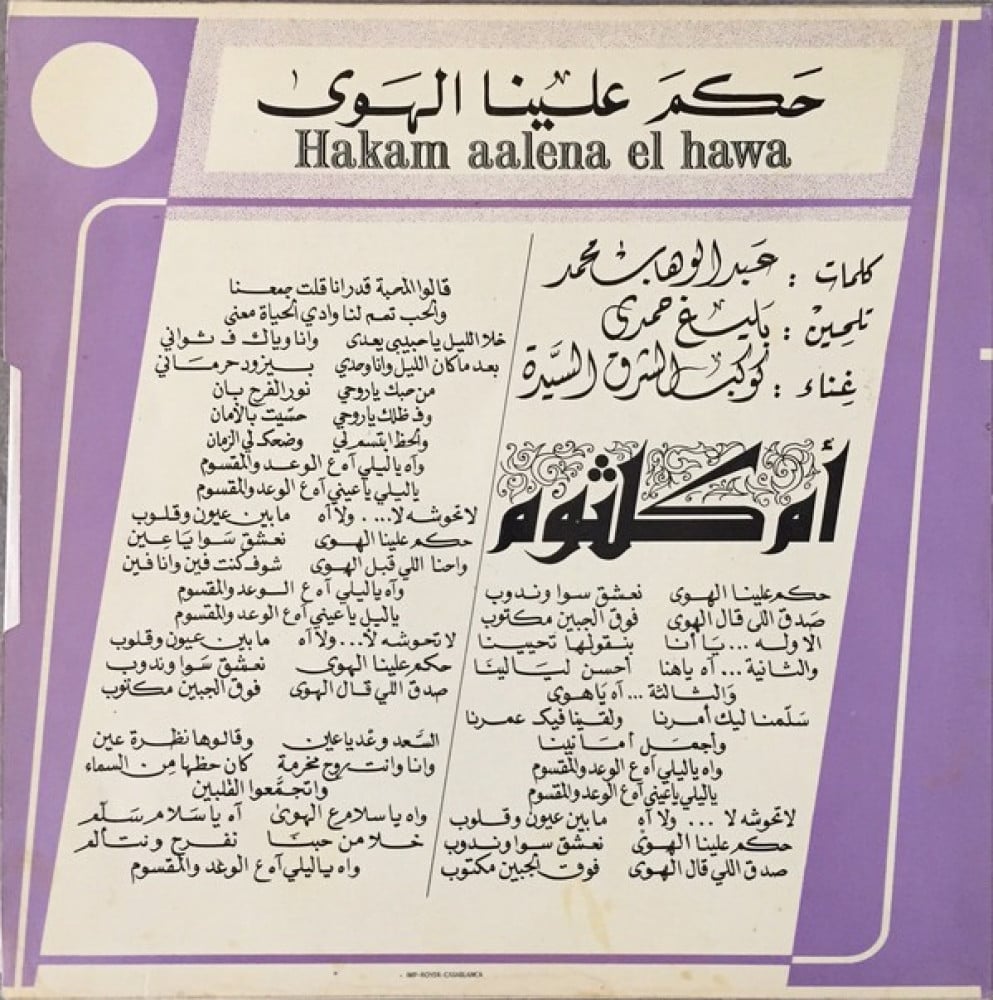 حكم علينا الهوى
Hakam aalena el hawa
كلمات : عبد الوهاب محمد
تلحين : بليغ حمدي
غناء : كوكب الشرق السيدة
أم كلثوم
حكم علينا الهوى نعشق سوا وندوب
صدق اللي قال الهوى فوق الجبين مكتوب
الاوله ... يا أنا بنقولها تحيينا
والثانية ... آه ياهنا أحسن ليالينا
والثالثة ... آه ياهوى
سلمنا ليك أمرنا ولقينا فيك عمرنا
وأجمل أمانينا
واه ياليلي آه ع الوعد والمقسوم
ياليلي ياعيني آه ع الوعد والمقسوم
لاتحوشه لا ... ولا آه مابين عيون وقلوب
حكم علينا الهوى نعشق سوا وندوب
صدق اللي قال الهوى فوق الجبين مكتوب
قالوا المحبة قدر انا قلت جمعنا
والحب تمم لنا وادي الحياة معنى
خلا الليل ياحبيبي يعدى وانا وياك ف ثواني
بعد ماكان الليل وانا وحدي بيزود حرماني
من حبك ياروحي نور الفرح بان
وف ظلك ياروحي حسيت بالأمان
والحظ ابتسم لي وضحك لي الزمان
وآه ياليلي آه ع الوعد والمقسوم
ياليلي ياعيني آه ع الوعد والمقسوم
لاتحوشه لا ... ولا آه مابين عيون وقلوب
حكم علينا الهوى نعشق سوا يا عين
واحنا اللي قبل الهوى شوف كنت فين وانا فين
وآه ياليلي آه ع الوعد والمقسوم
ياليل ياعيني آه ع الوعد والمقسوم
لاتحوشه لا ... ولا آه مابين عيون وقلوب
حكم علينا الهوى نعشق سوا وندوب
صدق اللي قال الهوى فوق الجبين مكتوب
السعد وعد ياعين وقالوها نظرة عين
وانا وانت روح مخرمة كان حظها من السماء
واتجمعوا القلبين
واه ياسلام ع الهوى آه يا سلام سلم
خلا من حبنا نفرح ونتألم
واه ياليلي آه ع الوعد والمقسوم
IMP-ROYER-CASABLANCA